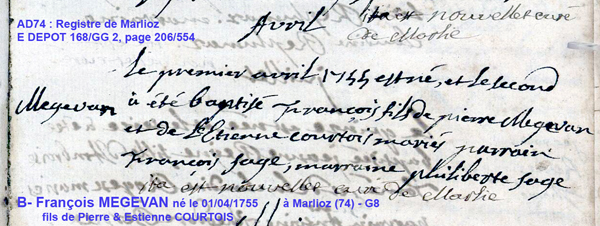 AD74 : Registre de Marlioz
E DEPOT 168/GG 2, page 206/554
Avril
ita est nouvellet curé
de Marlie
Le premier avril 1755 est né, et le second
Megevan
à été baptisé François fils de pierre Megevan
et de Estienne courtois mariés parrain
François sage, marraine philiberte sage
ita est nouvellet curé de Marlie
B- François MEGEVAN né le 01/04/1755 à Marlioz (74) - G8
fils de Pierre & Estienne COURTOIS